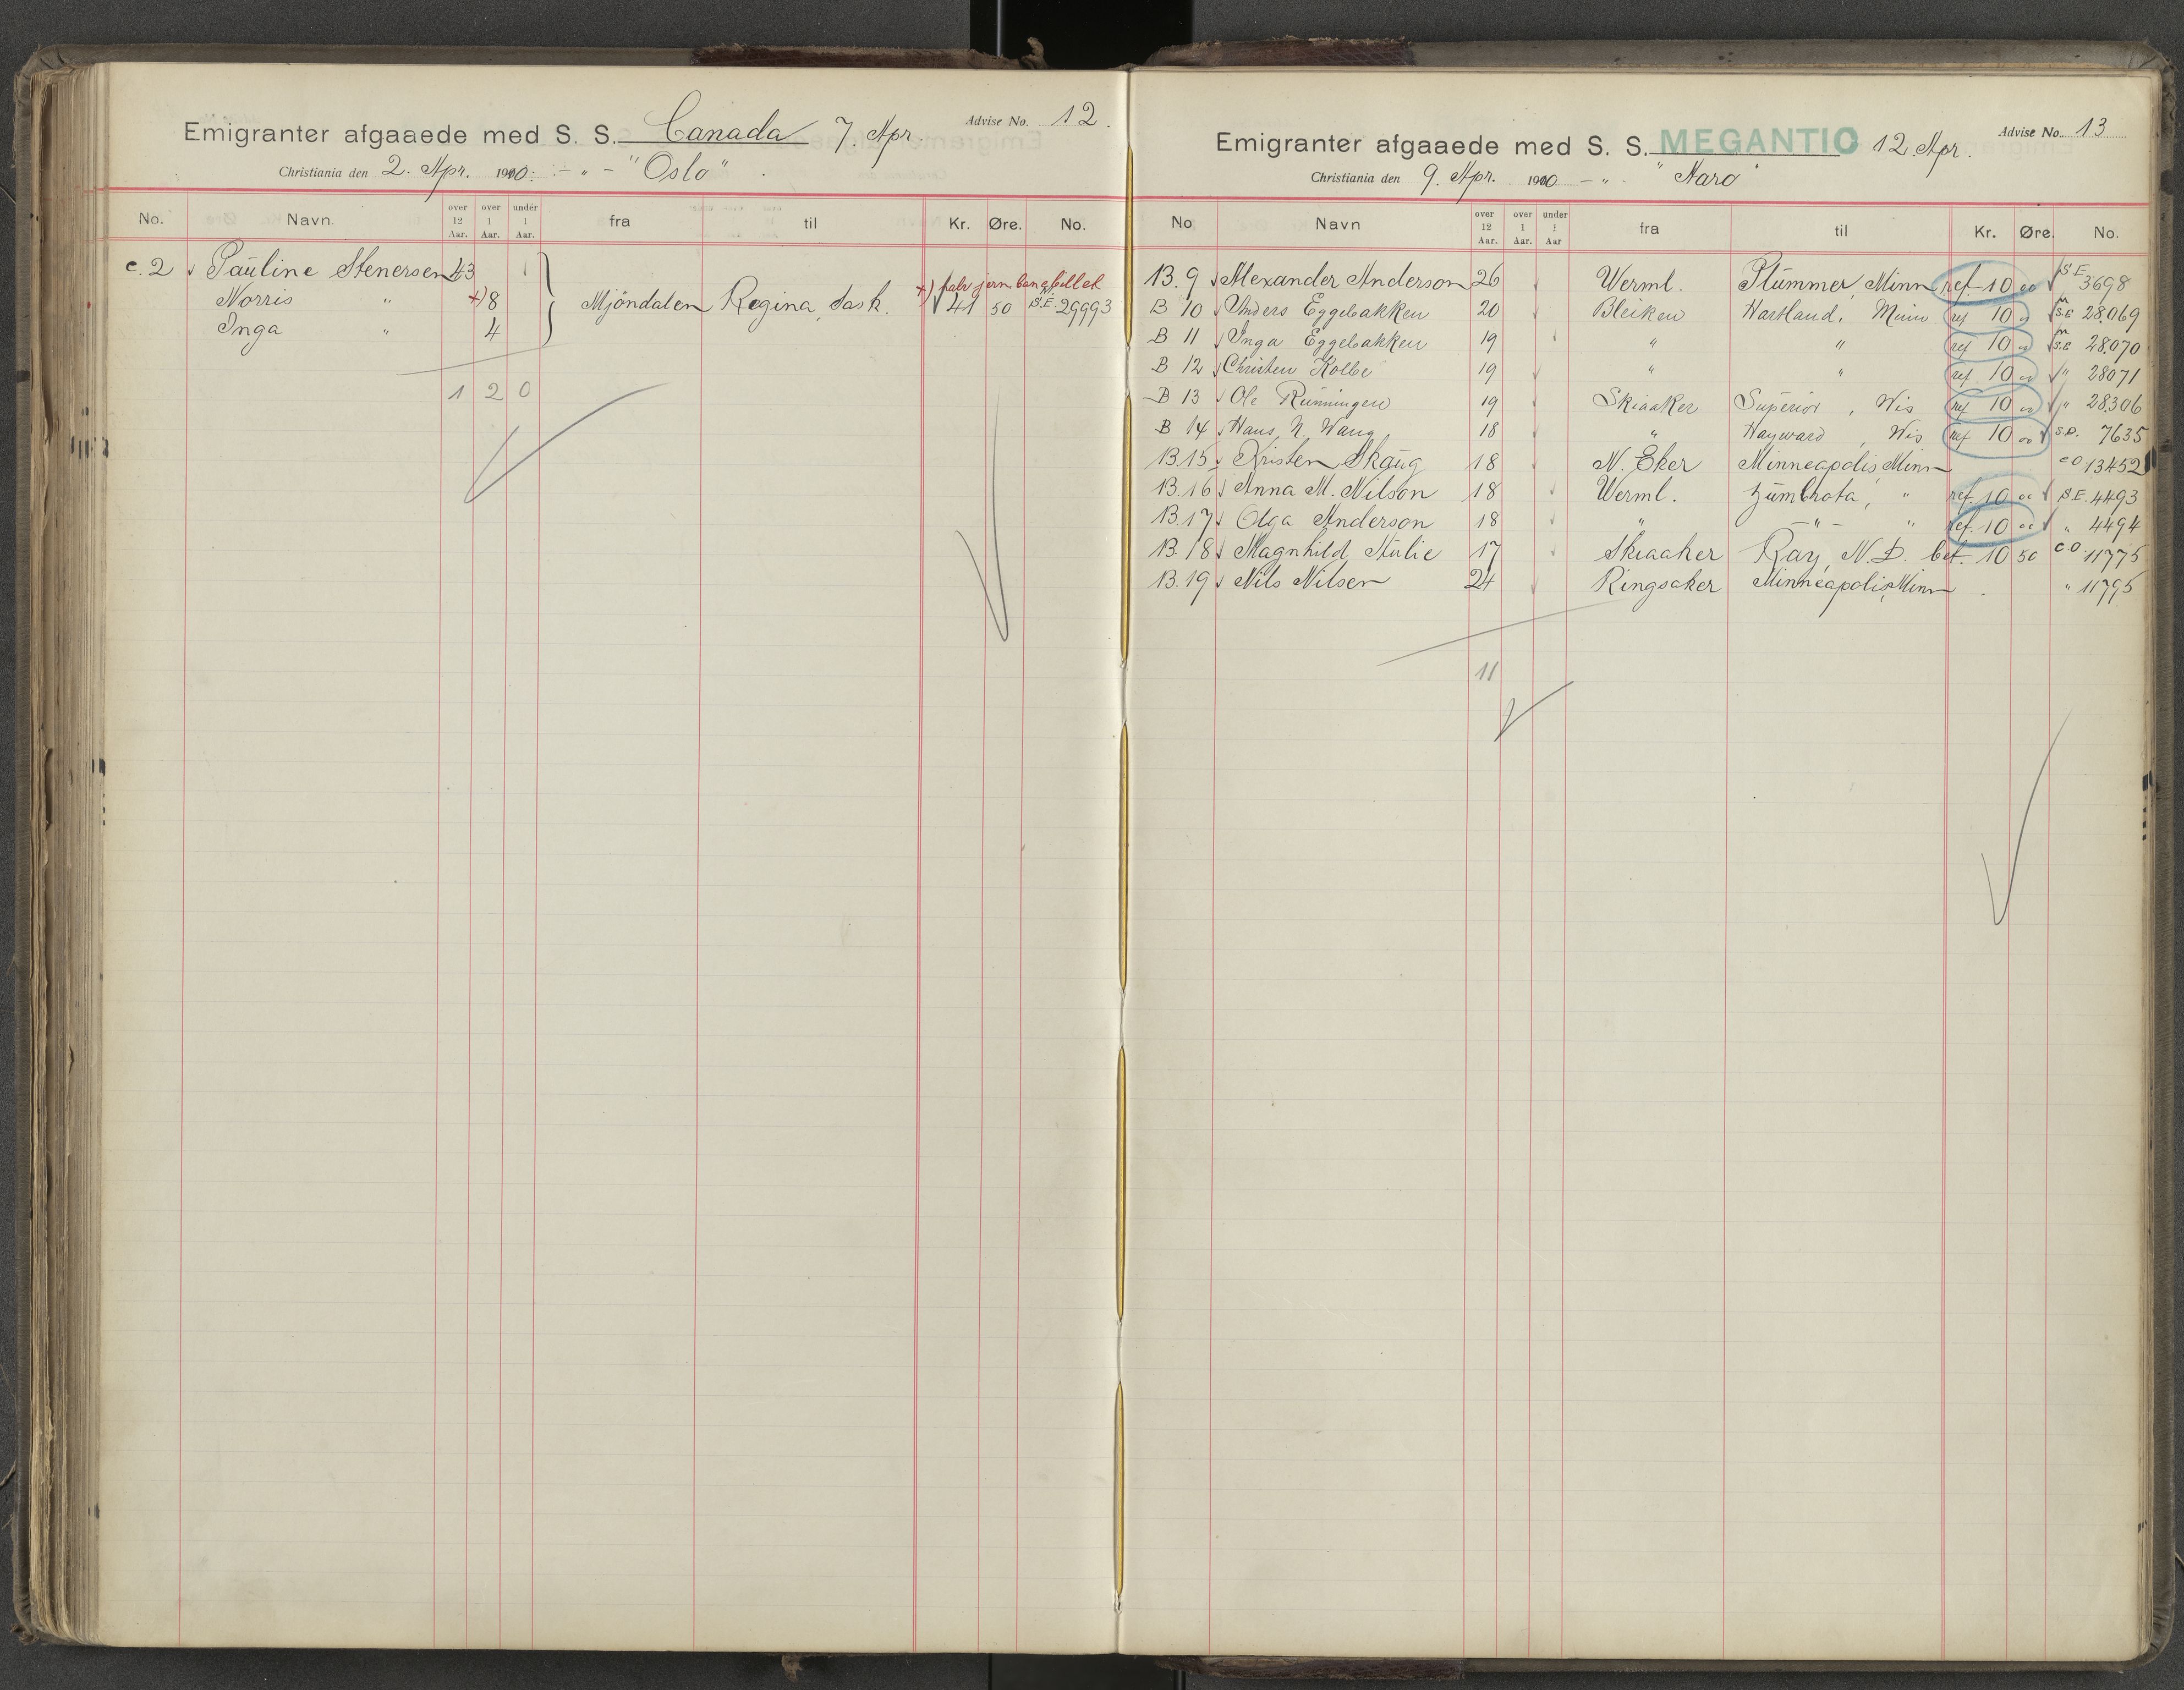 Advise No. 12.
Emigranter afgaaede med S. S. Canada 7. Apr.
Christiania den 2. Apr. 1910. - " - "Oslo"
No. Navn. over 12 Aar. over 1 Aar. under 1 Aar. fra til Kr. Øre. No.
+) halv jernbanebillet
c. 2 Pauline Stenersen 43
Norris " +) 8 Mjöndalen Regina, Sask. 41 50 S.E. 29993
Inga " 4
1 2 0
Advise No. 13
Emigranter afgaaede med S. S. MEGANTIC 12. Apr.
Christiania den 9. Apr. 1910 - " - "Aaro"
No Navn over 12 Aar. over 1 Aar. under 1 Aar fra til Kr. Øre. No.
B. 9 Alexander Anderson 26 Werml. Plummer, Minn ref. 10 00 S.E. 3698
B 10 Anders Eggebakken 20 Bleiken Hartland, Minn ref 10 00 S.E 28069
B 11 Inga Eggebakken 19 " " ref 10 00 S.E 28070
B 12 Christen Kolbe 19 " " ref. 10 00 " 28071
B 13 Ole Runningen 19 Skiaaker Superior, Wis ref 10 00 " 28306
B 14 Hans N. Wang 18 " Hayward, Wis ref 10 00 S.D. 7635
B. 15 Kristen Skaug 18 N. Eker Minneapolis Minn c.O. 13452
B. 16 Anna M. Nilson 18 Werml. Zumbrota, " ref. 10 00 S.E. 4493
B. 17 Olga Anderson 18 " - " - " ref. 10 00 " 4494
B. 18 Magnhild Stulie 17 Skiaaker Ray, N. D. bet. 10 50 c.O. 11775
B. 19 Nils Nilsen 24 Ringsaker Minneapolis, Minn " 11795
11